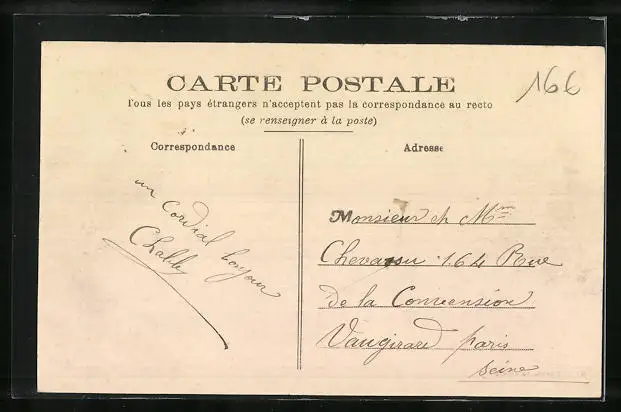 CARTE POSTALE
166
Tous les pays étrangers n'acceptent pas la correspondance au recto
(se renseigner à la poste)
Correspondance
Adresse
un Cordial bonjour
Monsieur et Mme
164 Rue
de la Convension
Vaugirard paris
Seine